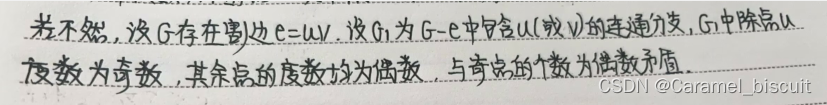 若不然，设G存在割边e=uv.设G₁为G-e中包含u(或v)的连通分支，G₁中除点u
度数为奇数，其余点的度数均为偶数，与奇点的个数为偶数矛盾.
CSDN @Caramel_biscuit